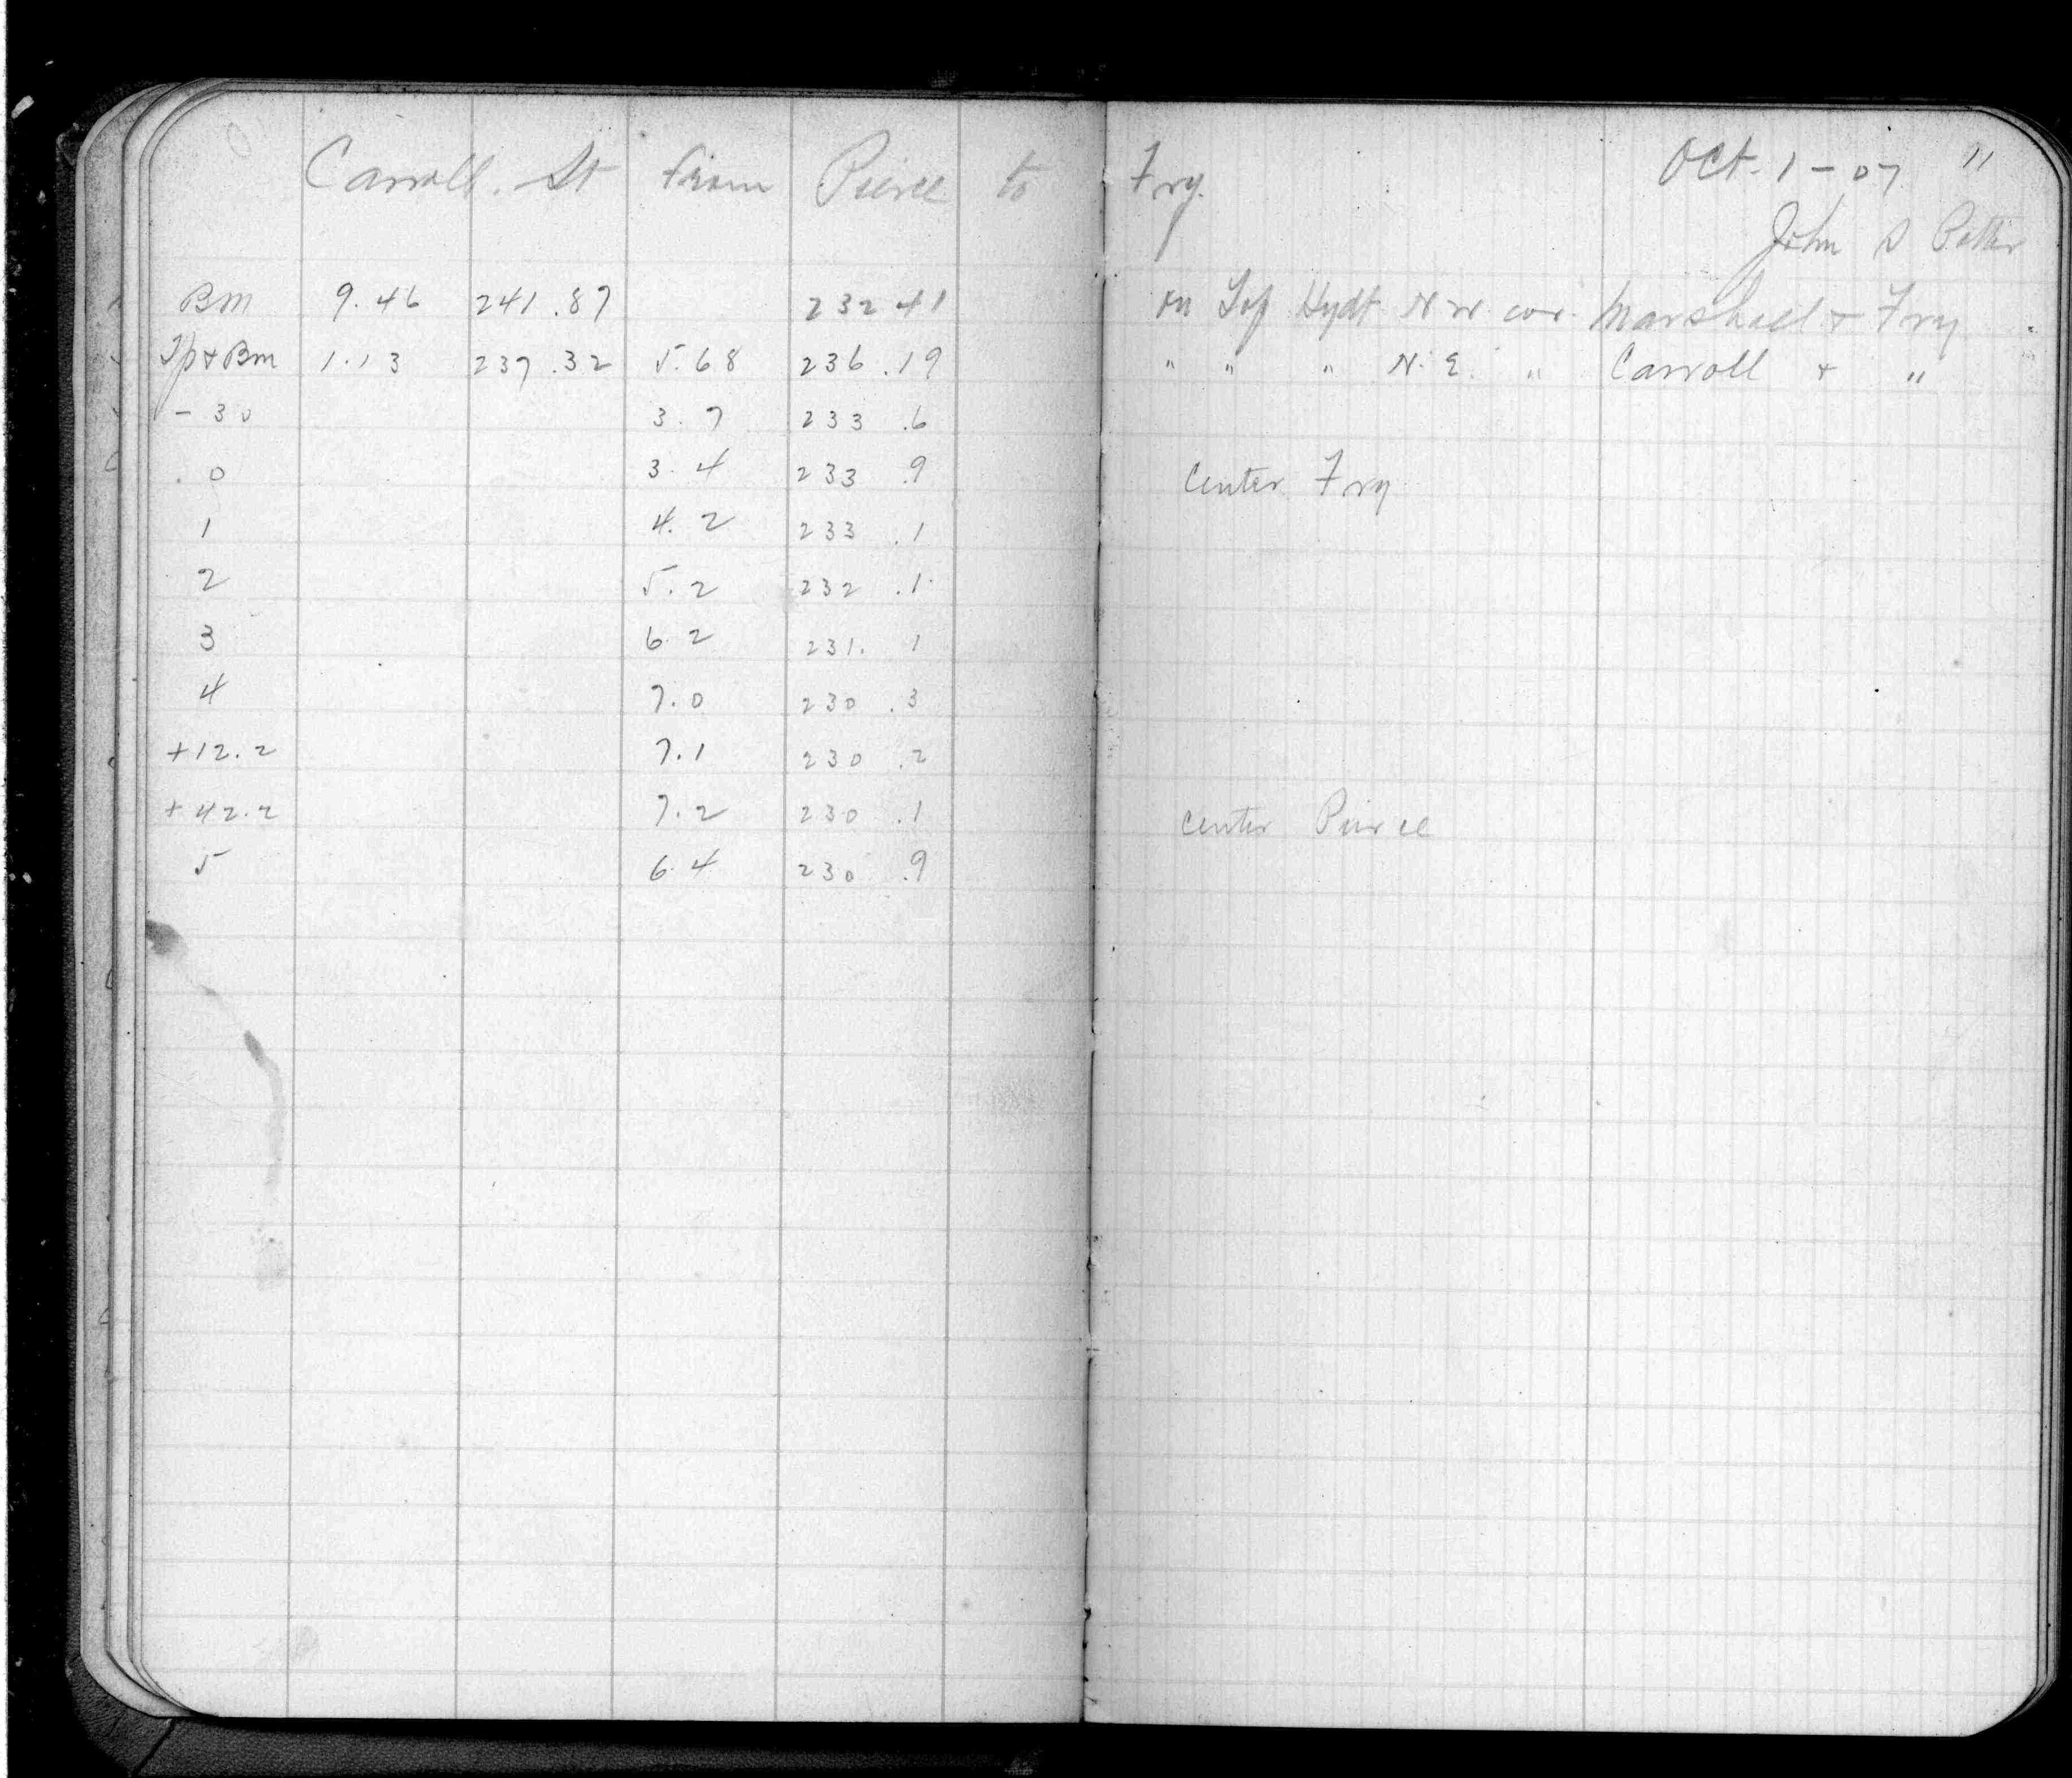 Carroll. St from Pierce to Fry. Oct. 1 - 07 11
John S Potter
BM 9.46 241.87 232 41 on Top Hydt N W cor. Marshall & Fry
Tp & Bm 1.13 237.32 5.68 236.19 " " " N. E. " Carroll & "
- 30 3.7 233 .6
0 3.4 233 .9 Center Fry
1 4.2 233 .1
2 5.2 232 .1
3 6 2 231. 1
4 7.0 230 .3
+12.2 7.1 230 .2
+42.2 7.2 230 .1 center Pierce
5 6.4 230 .9